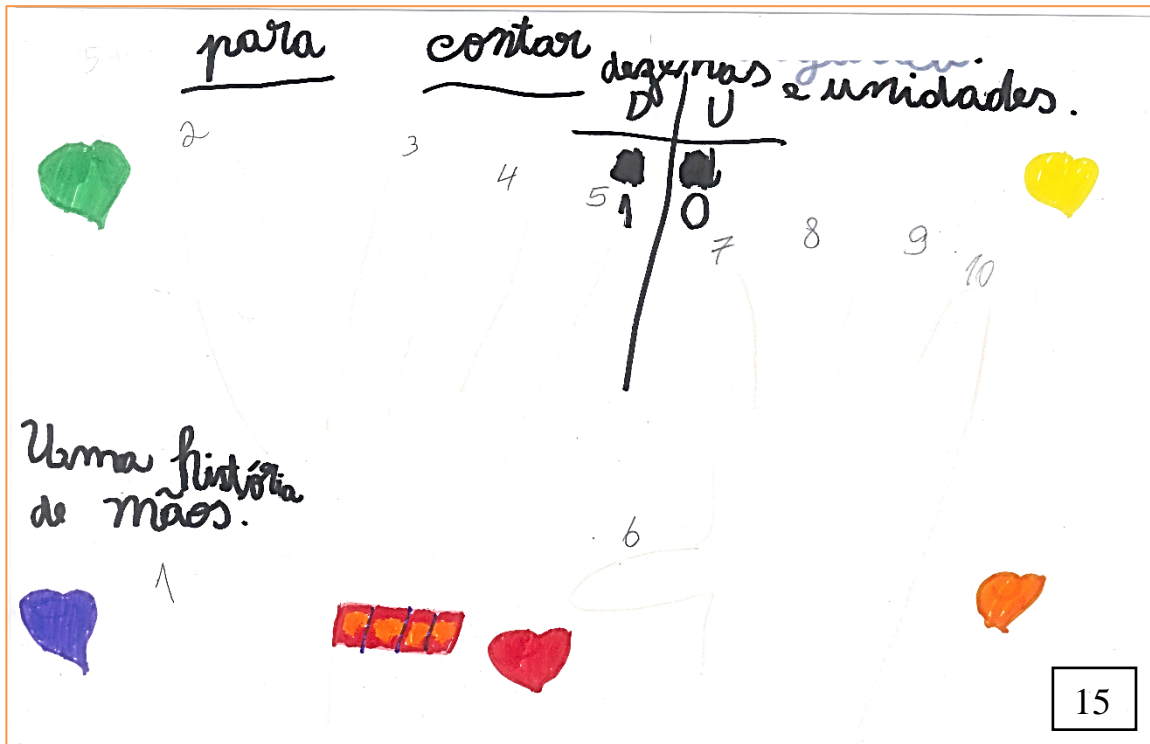 para contar
dezenas e unidades.
D U
2 3 4 5
1 0
7 8 9 10
Uma história
de mãos.
6
1
15